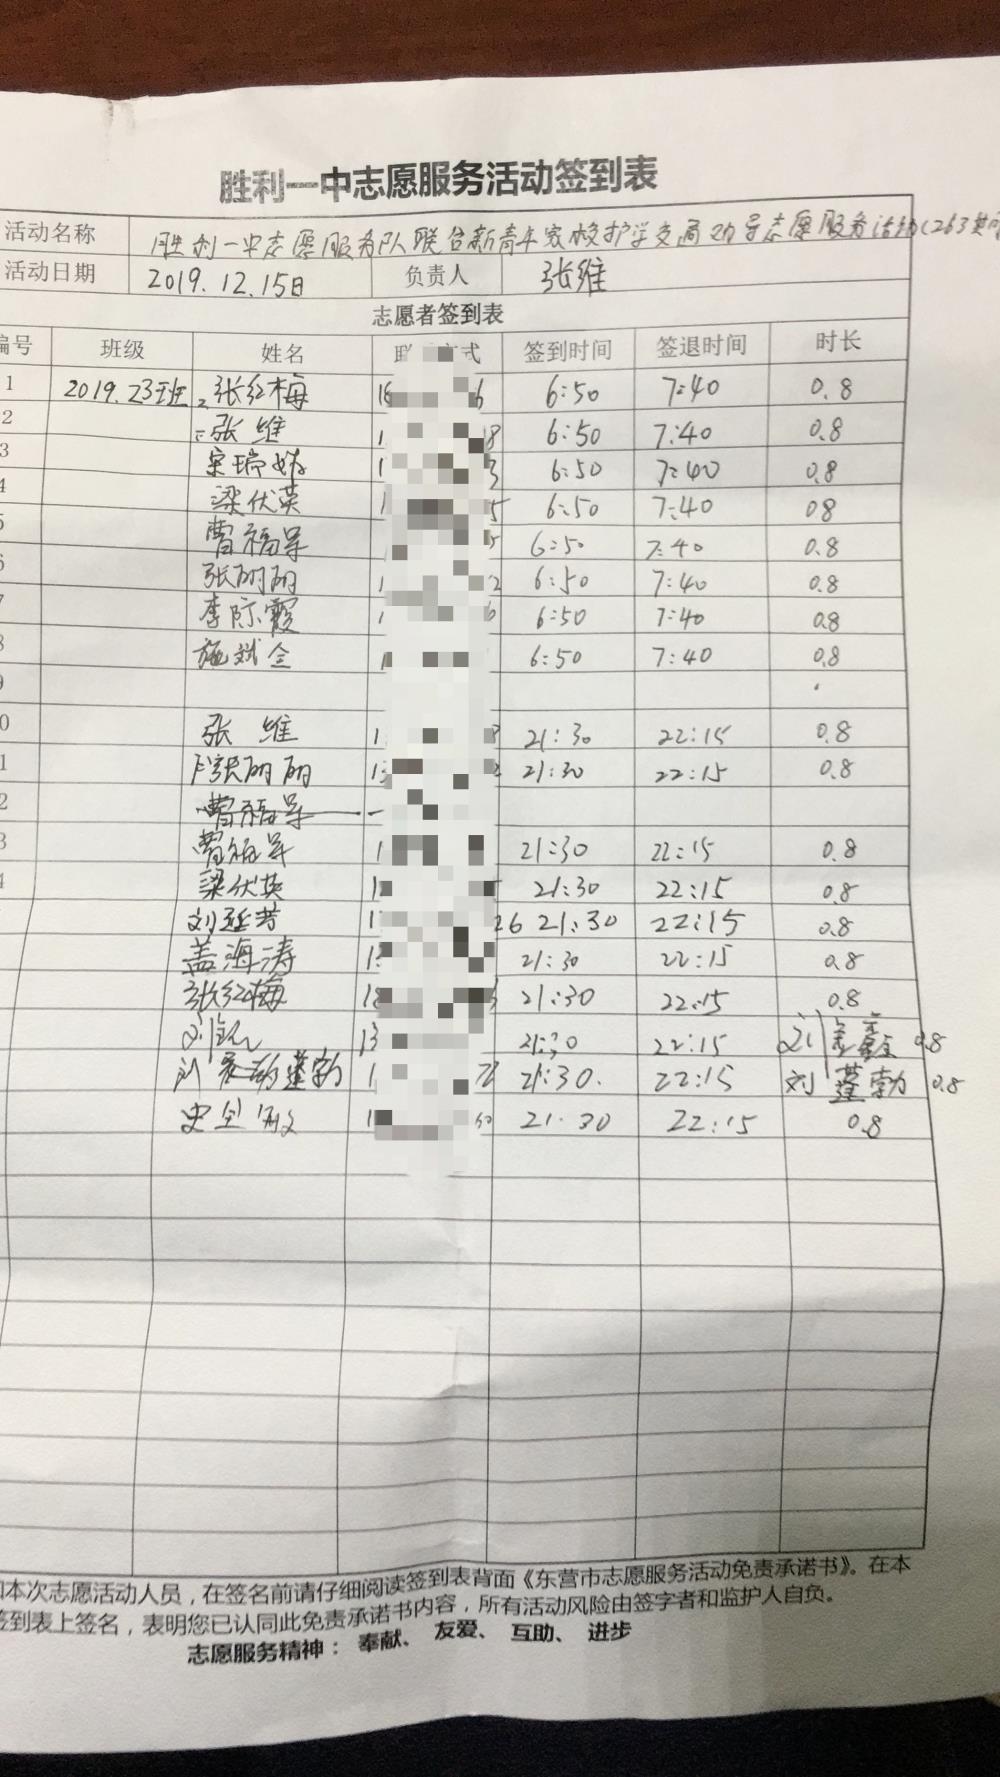 胜利一中志愿服务活动签到表
活动名称 胜利一中志愿服务队联合新青年家校护学交通劝导志愿服务活动(263
活动日期 2019.12.15日 负责人 张维
志愿者签到表
编号 班级 姓名 联 方式 签到时间 签退时间 时长
1 2019.23班 张红梅 16 6 6:50 7:40 0.8
2 张维 1 18 6:50 7:40 0.8
3 宋瑞 1 3 6:50 7:40 0.8
4 梁伏英 1 5 6:50 7:40 08
5 曹福 5 6:50 7:40 0.8
6 张丽丽 1 2 6:50 7:40 0.8
7 李际霞 1 6 6:50 7:40 0.8
8 施斌全 1 6:50 7:40 0.8
9
0 张维 1 8 21:30 22:15 0.8
1 张丽丽 13 2 21:30 22:15 0.8
2 曹福
3 曹福 1 21:30 22:15 0.8
4 梁伏英 1 21:30 22:15 0.8
刘延芳 1 26 21:30 22:15 0.8
盖海涛 1 21:30 22:15 0.8
张红梅 18 21:30 22:15 0.8
刘 13 21:30 22:15 刘鑫 0.8
刘 蓬勃 1 21:30. 22:15 刘蓬勃 0.8
史全 1 21.30 22:15 0.8
加本次志愿活动人员，在签名前请仔细阅读签到表背面《东营市志愿服务活动免责承诺书》。在本
签到表上签名，表明您已认同此免责承诺书内容，所有活动风险由签字者和监护人自负。
志愿服务精神： 奉献、 友爱、 互助、 进步